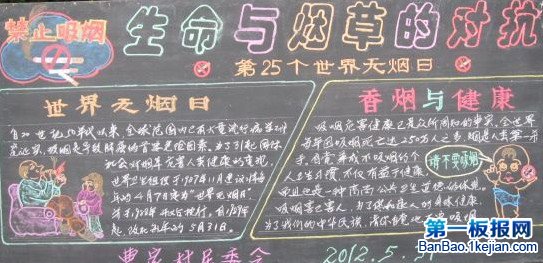 禁止吸烟
生命与烟草的对抗
第25个世界无烟日
世界无烟日
自20世纪50年代以来，全球范围内已有大量流行病学研究
证实，吸烟是导致肺癌的首要危险因素。为了引起国际
社会对烟草危害人类健康的重视，
世界卫生组织于1987年11月建议将每
年的4月7日定为“世界无烟日”，
并于1988年开始执行。自1989年
起，改为每年的5月31日。
香烟与健康
吸烟危害健康已是众所周知的事实。全世界
每年因吸烟死亡达250万人之多，烟是人类第一杀
手。自觉养成不吸烟的个
人卫生习惯，不仅有益于健康，
而且也是一种高尚公共卫生道德的体现。
吸烟害己害人，为了您和家人的身体健康，
为了我们的中华民族，请你自觉
请不要吸烟
村居委会
2012.5.31
第一板报网
BanBao.1kejian.com